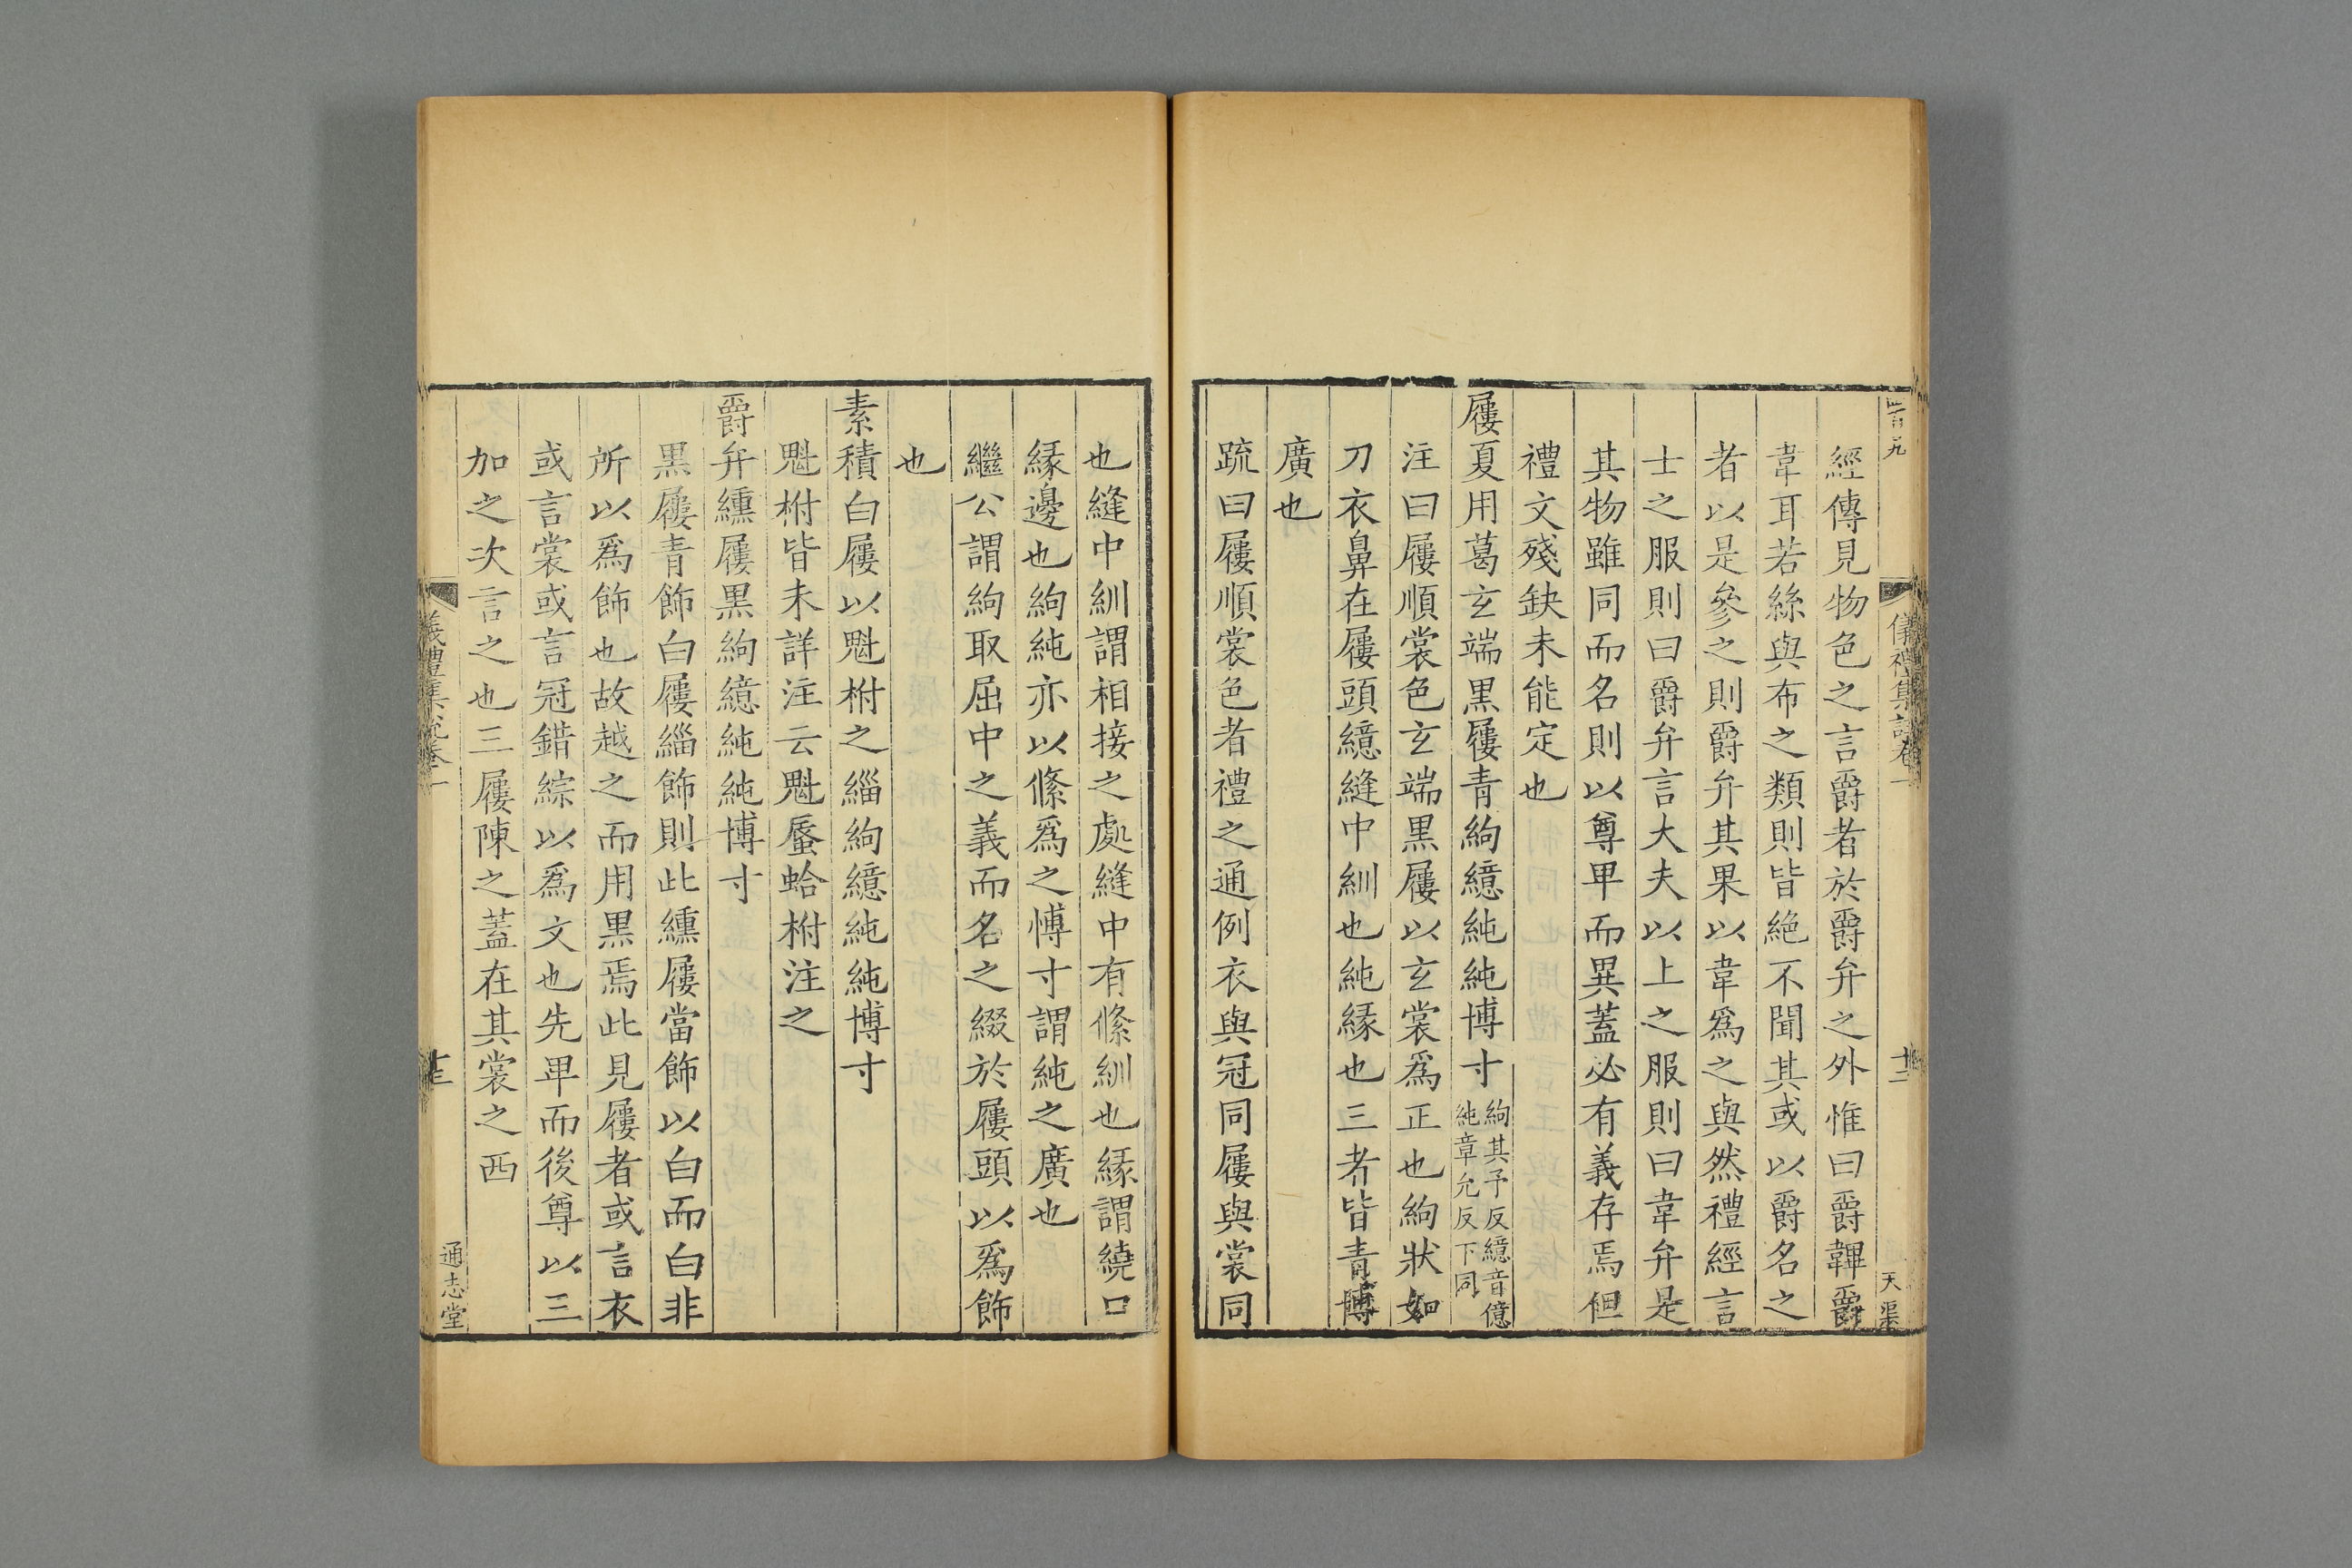 儀禮集說卷一
十二
天渠
經傳見物色之言爵者於爵弁之外惟曰爵韠爵
韋耳若絲與布之類則皆絶不聞其或以爵名之
者以是參之則爵弁其果以韋爲之與然禮經言
士之服則曰爵弁言大夫以上之服則曰韋弁是
其物雖同而名則以尊卑而異蓋必有義存焉但
禮文殘缺未能定也
屨夏用葛玄端黑屨青絇繶純純博寸絇其予反繶音億純章允反下同
注曰屨順裳色玄端黑屨以玄裳爲正也絇狀如
刀衣鼻在屨頭繶縫中紃也純緣也三者皆青博
廣也
疏曰屨順裳色者禮之通例衣與冠同屨與裳同
也縫中紃謂相接之處縫中有絛紃也緣謂繞口
緣邊也絇純亦以絛爲之博寸謂純之廣也
繼公謂絇取屈中之義而名之綴於屨頭以爲飾
也
素積白屨以魁柎之緇絇繶純純博寸
魁柎皆未詳注云魁蜃蛤柎注之
爵弁纁屨黑絇繶純純博寸
黑屨青飾白屨緇飾則此纁屨當飾以白而白非
所以爲飾也故越之而用黑焉此見屨者或言衣
或言裳或言冠錯綜以爲文也先卑而後尊以三
加之次言之也三屨陳之蓋在其裳之西
儀禮集說卷一
十三
通志堂